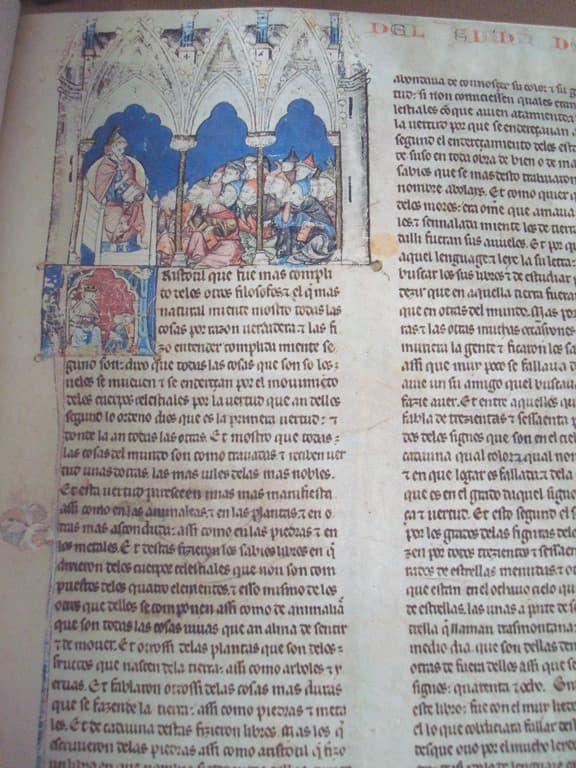 DEL
Aristotil que fue mas compli
to delos otros filosofos ⁊ el q̃ mas
natural miente mostro todas las
cosas por razon uerdadera ⁊ las fi
zo entender complida miente se
guno son: dixo que todas las cosas que son so los
cielos se mueuen ⁊ se endereçan por el mouimiẽto
delos cuerpos celestiales por la uertud que an dellos
segund lo ordeno dios que es la primera uertud: ⁊
donde la an todas las otras. Et mostro que todas
las cosas del mundo son como trauadas ⁊ reciben uer
tud unas dotras. las mas uiles delas mas nobles.
Et esta uertud paresce en unas mas manifiesta.
assi como en las animalias ⁊ en las plantas ⁊ en o
tras mas asconduda: assi como en las piedras ⁊ en
los metales. Et destas fizieron los sabios libros en q̃
dixieron delos cuerpos celestiales que non son com
puestos delos quatro elementos. ⁊ esso mismo delos
otros que dellos se componen assi como de animalia
que son todas las cosas uiuas que an alma de sentir
⁊ de mouer. Et otrossi delas plantas que son delos
fructos que nascen dela tierra. assi como arboles ⁊ y
eruas. Et fablaron otrossi delas cosas mas duras
que se fazen de la tierra: assi como piedras ⁊ meta
les. Et de cadauna destas fizieron libros.
escriuieron delas piedras assi como aristotil q̃ fizo
un libro en que
abondaua de connoscer su color ⁊ su g
tud: si non connosciessen quales eran
lestiales cõ que auien atamiento
la uertud por que se endereçauan
segund el endereçamiento delos est
de suso en toda obra de bien o de ma
sabios que se mas desto trabaiaron
nombre abolays. Et como quier q
delos moros: era ome que amaua
les. ⁊ sennalada miente los de tierra
dalli fueran sus auuelos. Et por qu
aquel lenguage ⁊ leye la su letra:
buscar los sus libros ⁊ de estudiar p
dezir que en aquella tierra fuera
que en otras del mundo. Mas por
ras ⁊ las otras muchas occasiones
murera la gente ⁊ ficaron los sa
assi que muy poco se fallaua d
auie un su amigo quel buscaua
fazie auer. Et entre aquellos qu
fabla de trezientas ⁊ sessaenta p
dos delos signos que son en el cielo
cadauna qual color ⁊ qual nom
⁊ en que logar es fallada: ⁊ dela
que es en el grado daquel signo
ça ⁊ uertud. Et esto segund el s
por los grados delas figuras delo
zen por todos trezientos ⁊ sessaen
rados de estrellas menudas ⁊ ot
que estan en el ochauo cielo qu
de estrellas. las unas a parte de s
trella q̃ llaman trasmontana:
medio dia. que son dellas den
otras de fuera dellos assi que se
signos: quarenta ⁊ ocho.
este libro: fue con el muy ledo
el lo que cobdiciara fallar del
desque ouo por el mucho leydo